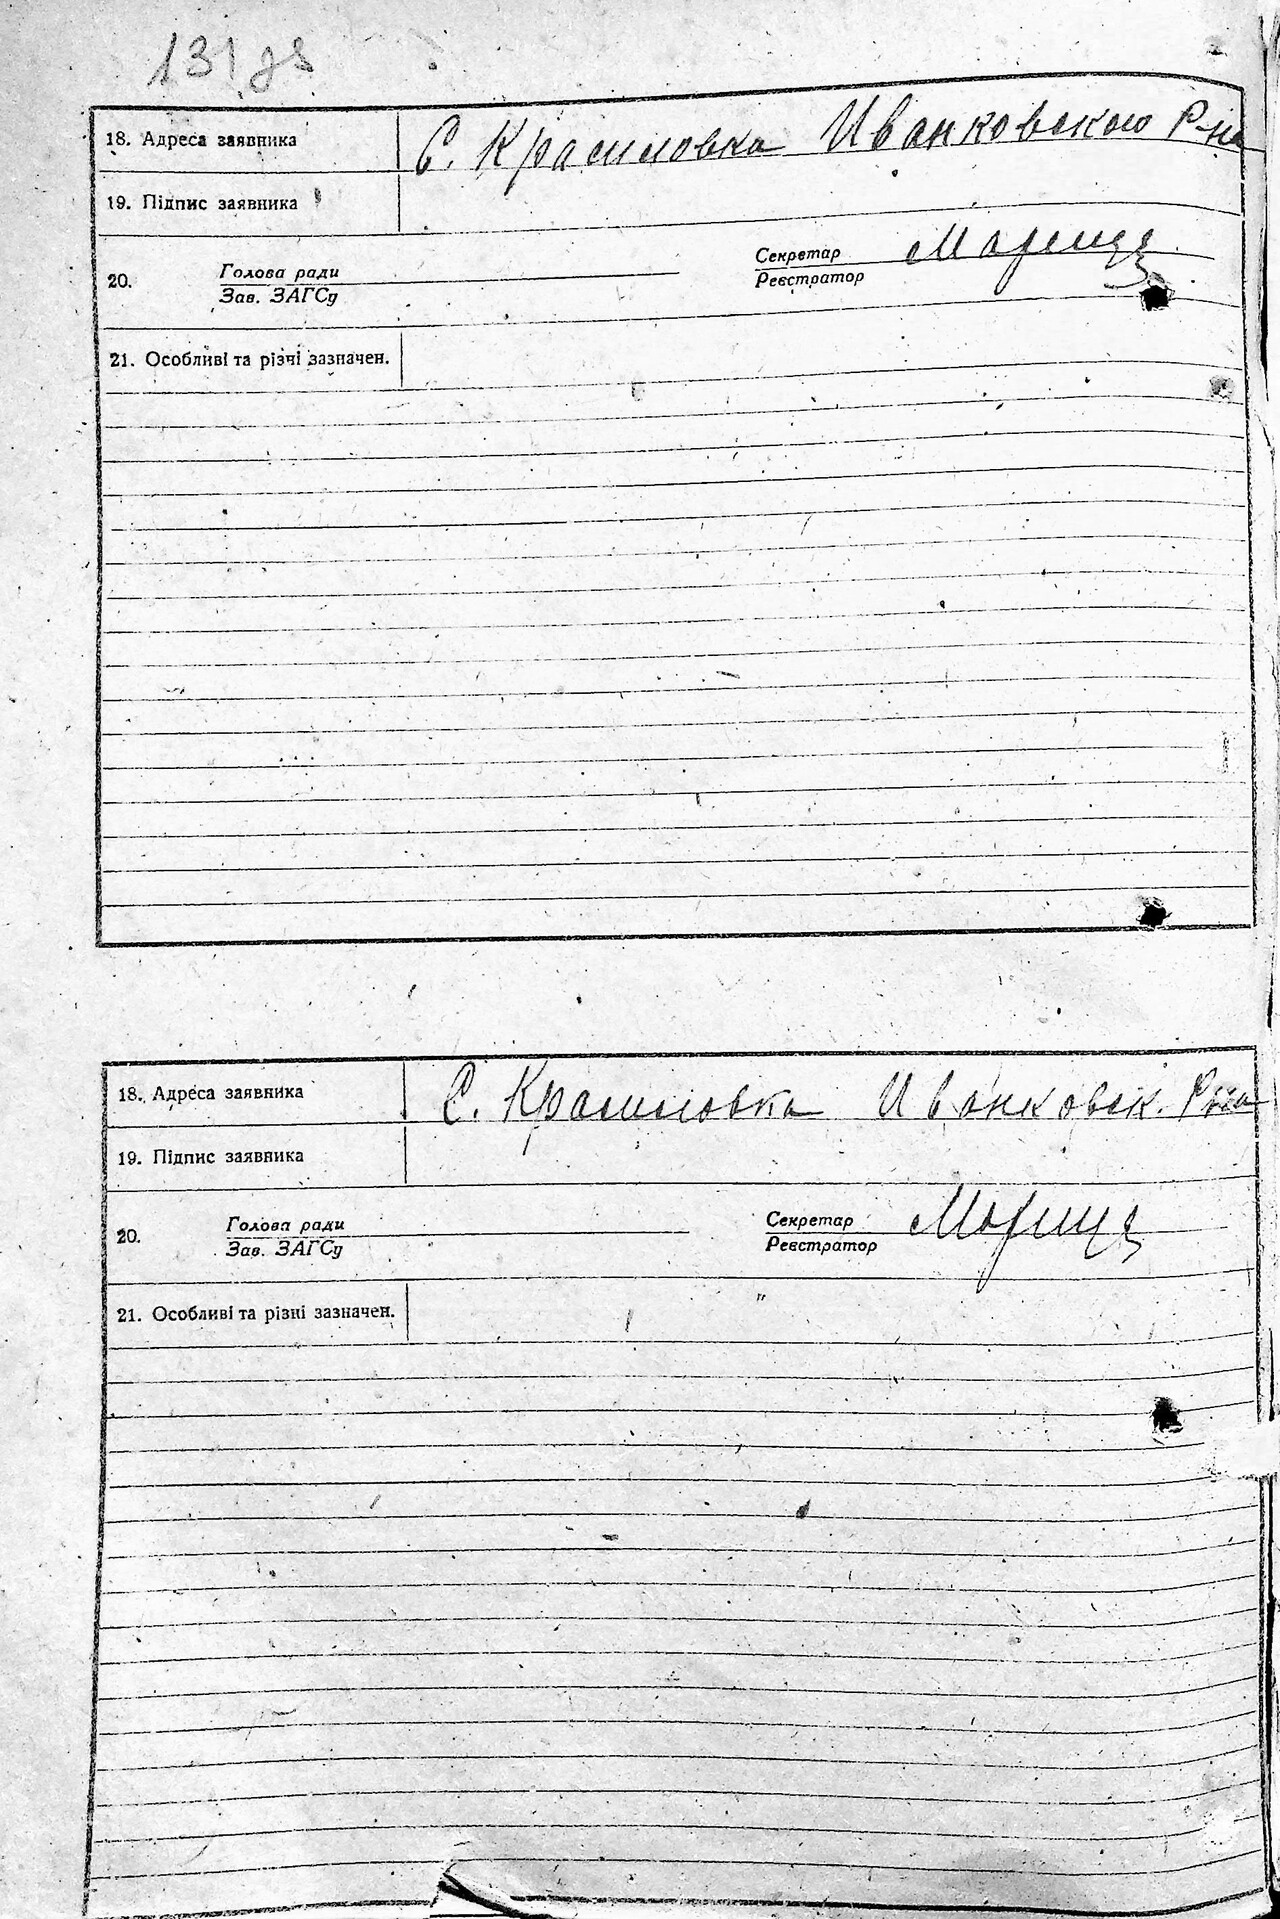 131 зв
18. Адреса заявника С. Красиловка Иванковского Р-на
19. Підпис заявника
20. Голова ради Секретар
Зав. ЗАГСу Реєстратор
21. Особливі та різні зазначен.
18. Адреса заявника С. Красиловка Иванковск. Р-на
19. Підпис заявника
20. Голова ради Секретар
Зав. ЗАГСу Реєстратор
21. Особливі та різні зазначен.